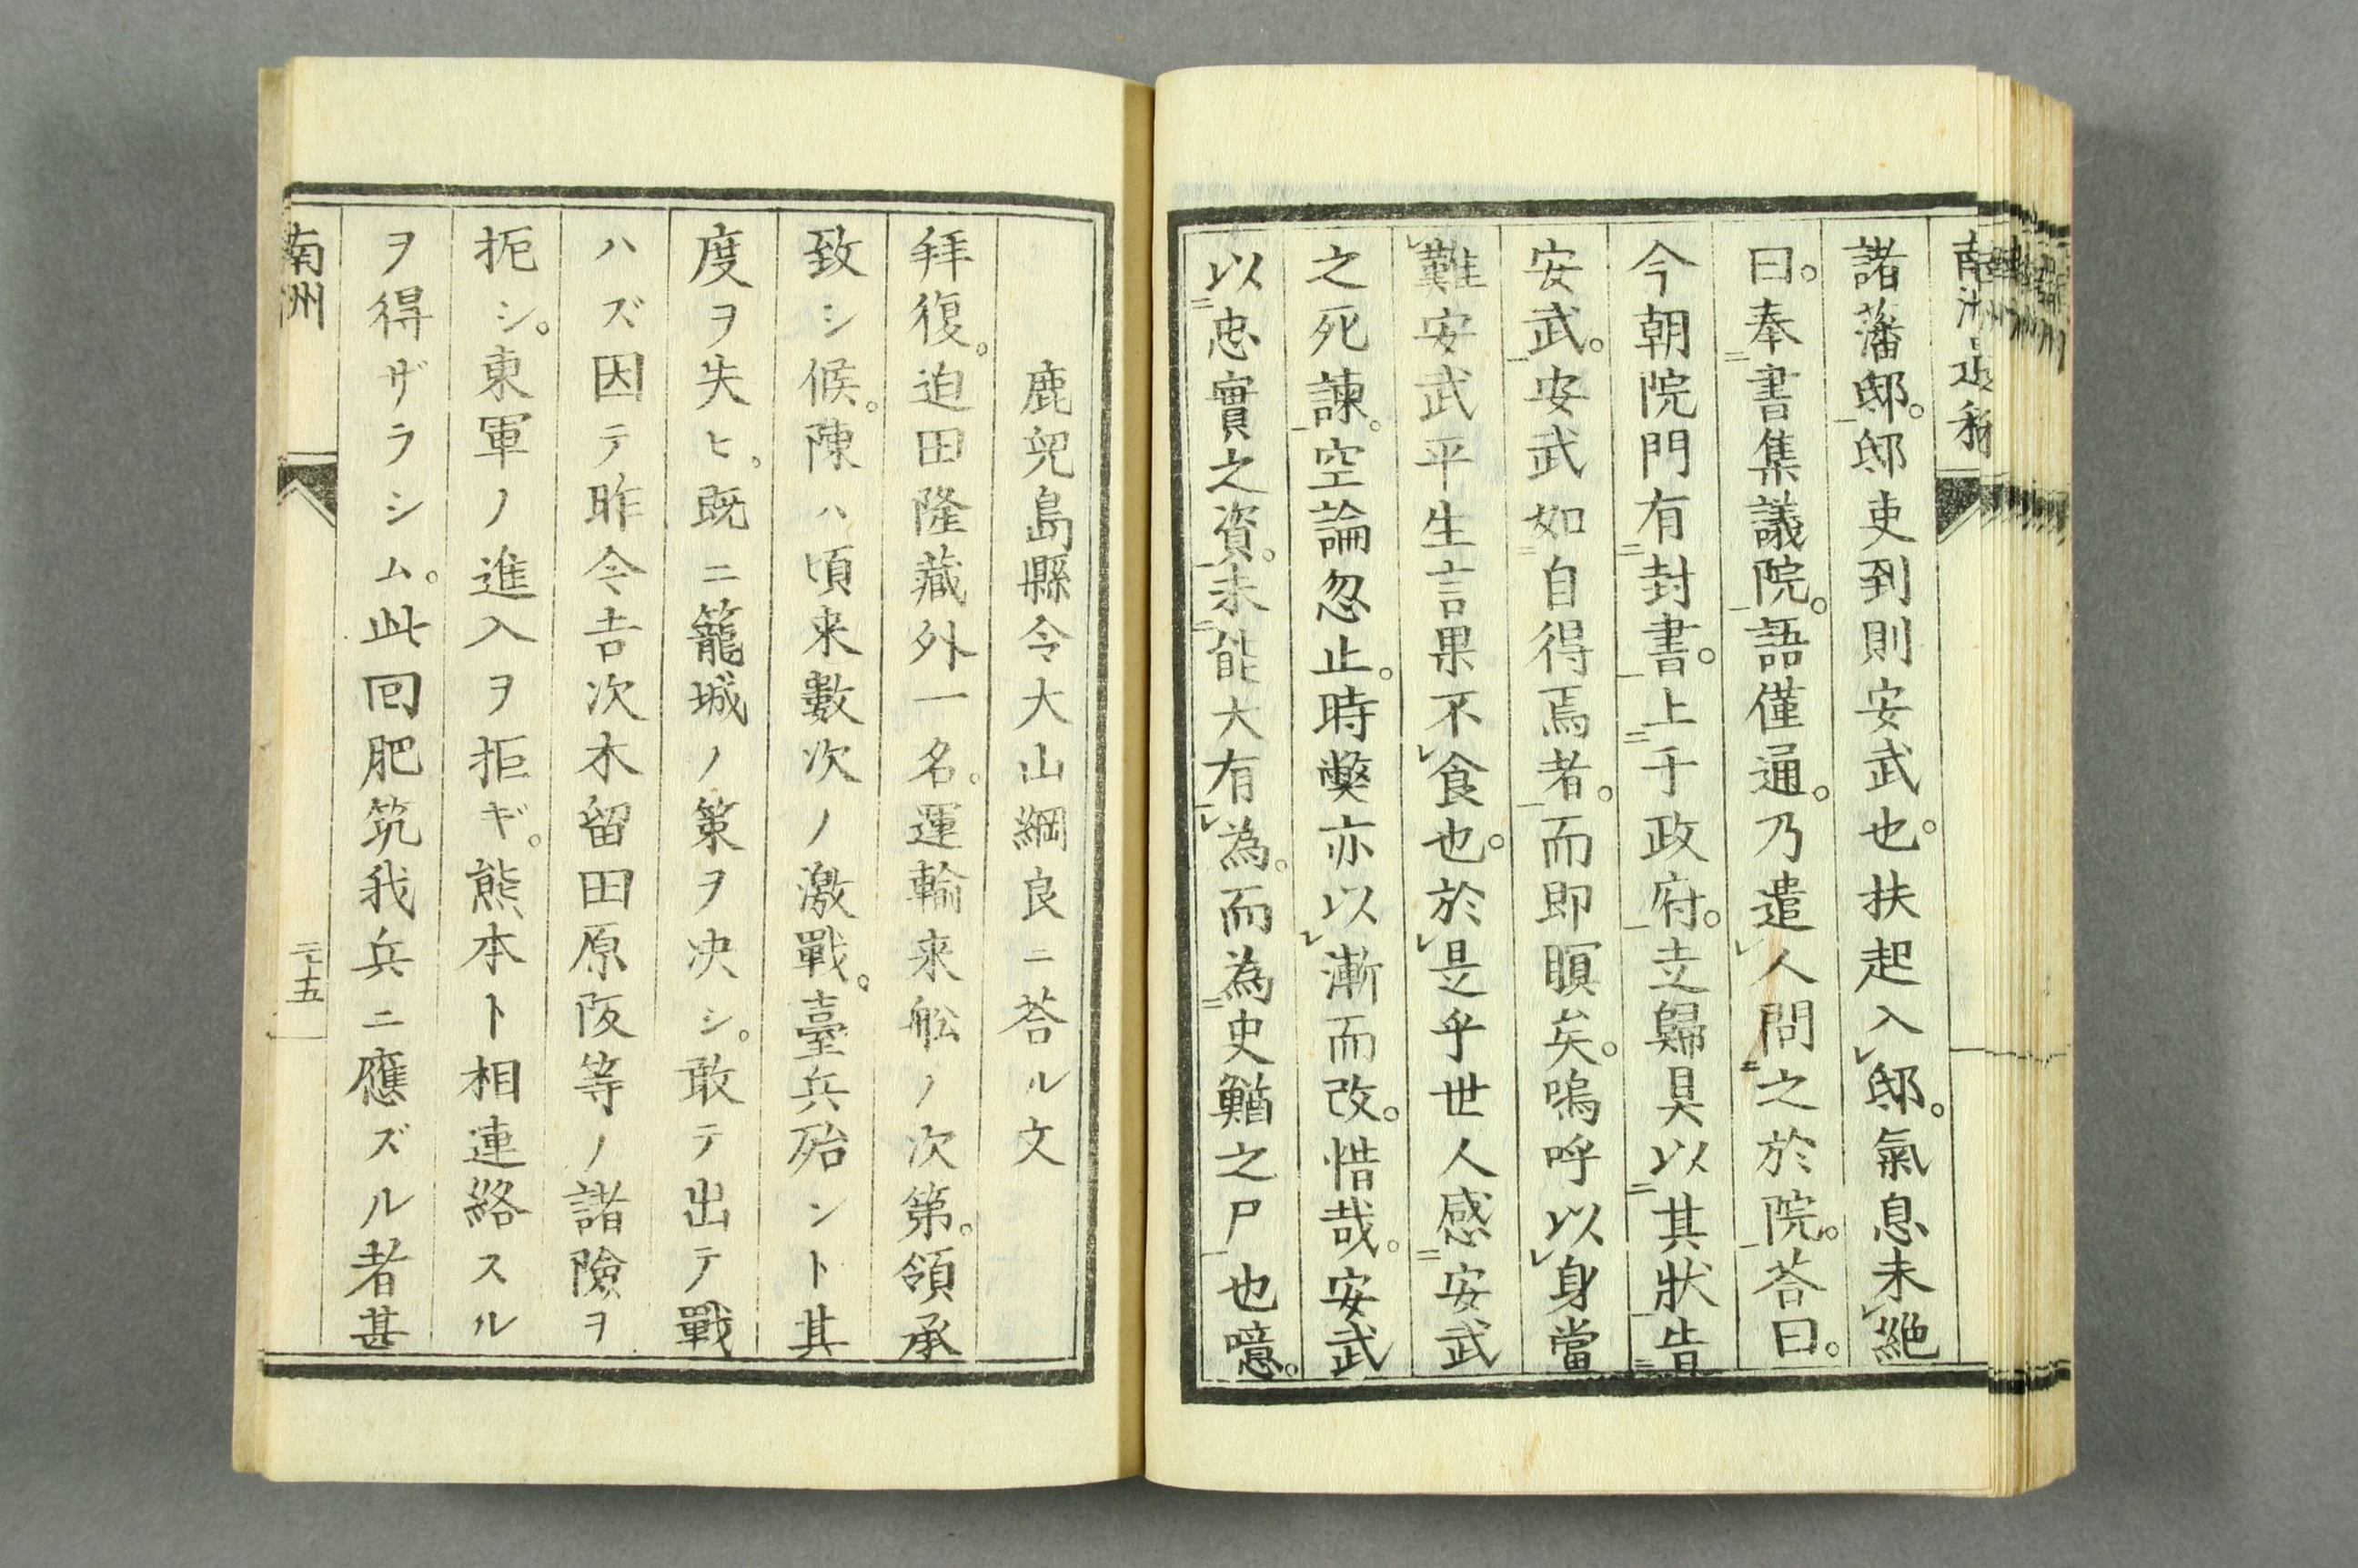 諸藩邸。邸吏到則安武也。扶起入邸。氣息未絶
曰。奉書集議院。語僅通。乃遣人問之於院。荅曰。
今朝院門有封書。上于政府。走歸具以其狀告
安武。安武如自得焉者。而即瞑矣。嗚呼以身當
難安武平生言果不食也。於是乎世人感安武
之死諫。空論忽止。時弊亦以漸而改。惜哉。安武
以忠實之資。未能大有為。而為史鰌之尸也噫。
鹿兒島縣令大山綱良ニ荅ル文
拜復。迫田隆藏外一名。運輸来舩ノ次第。領承
致シ候。陳ハ頃来數次ノ激戰。臺兵殆ント其
度ヲ失ヒ。既ニ籠城ノ策ヲ决シ。敢テ出テ戰
ハズ因テ昨今吉次木留田原阪等ノ諸險ヲ
扼シ。東軍ノ進入ヲ拒ギ。熊本ト相連絡スル
ヲ得ザラシム。此回肥筑我兵ニ應ズル者甚
南洲
二十五